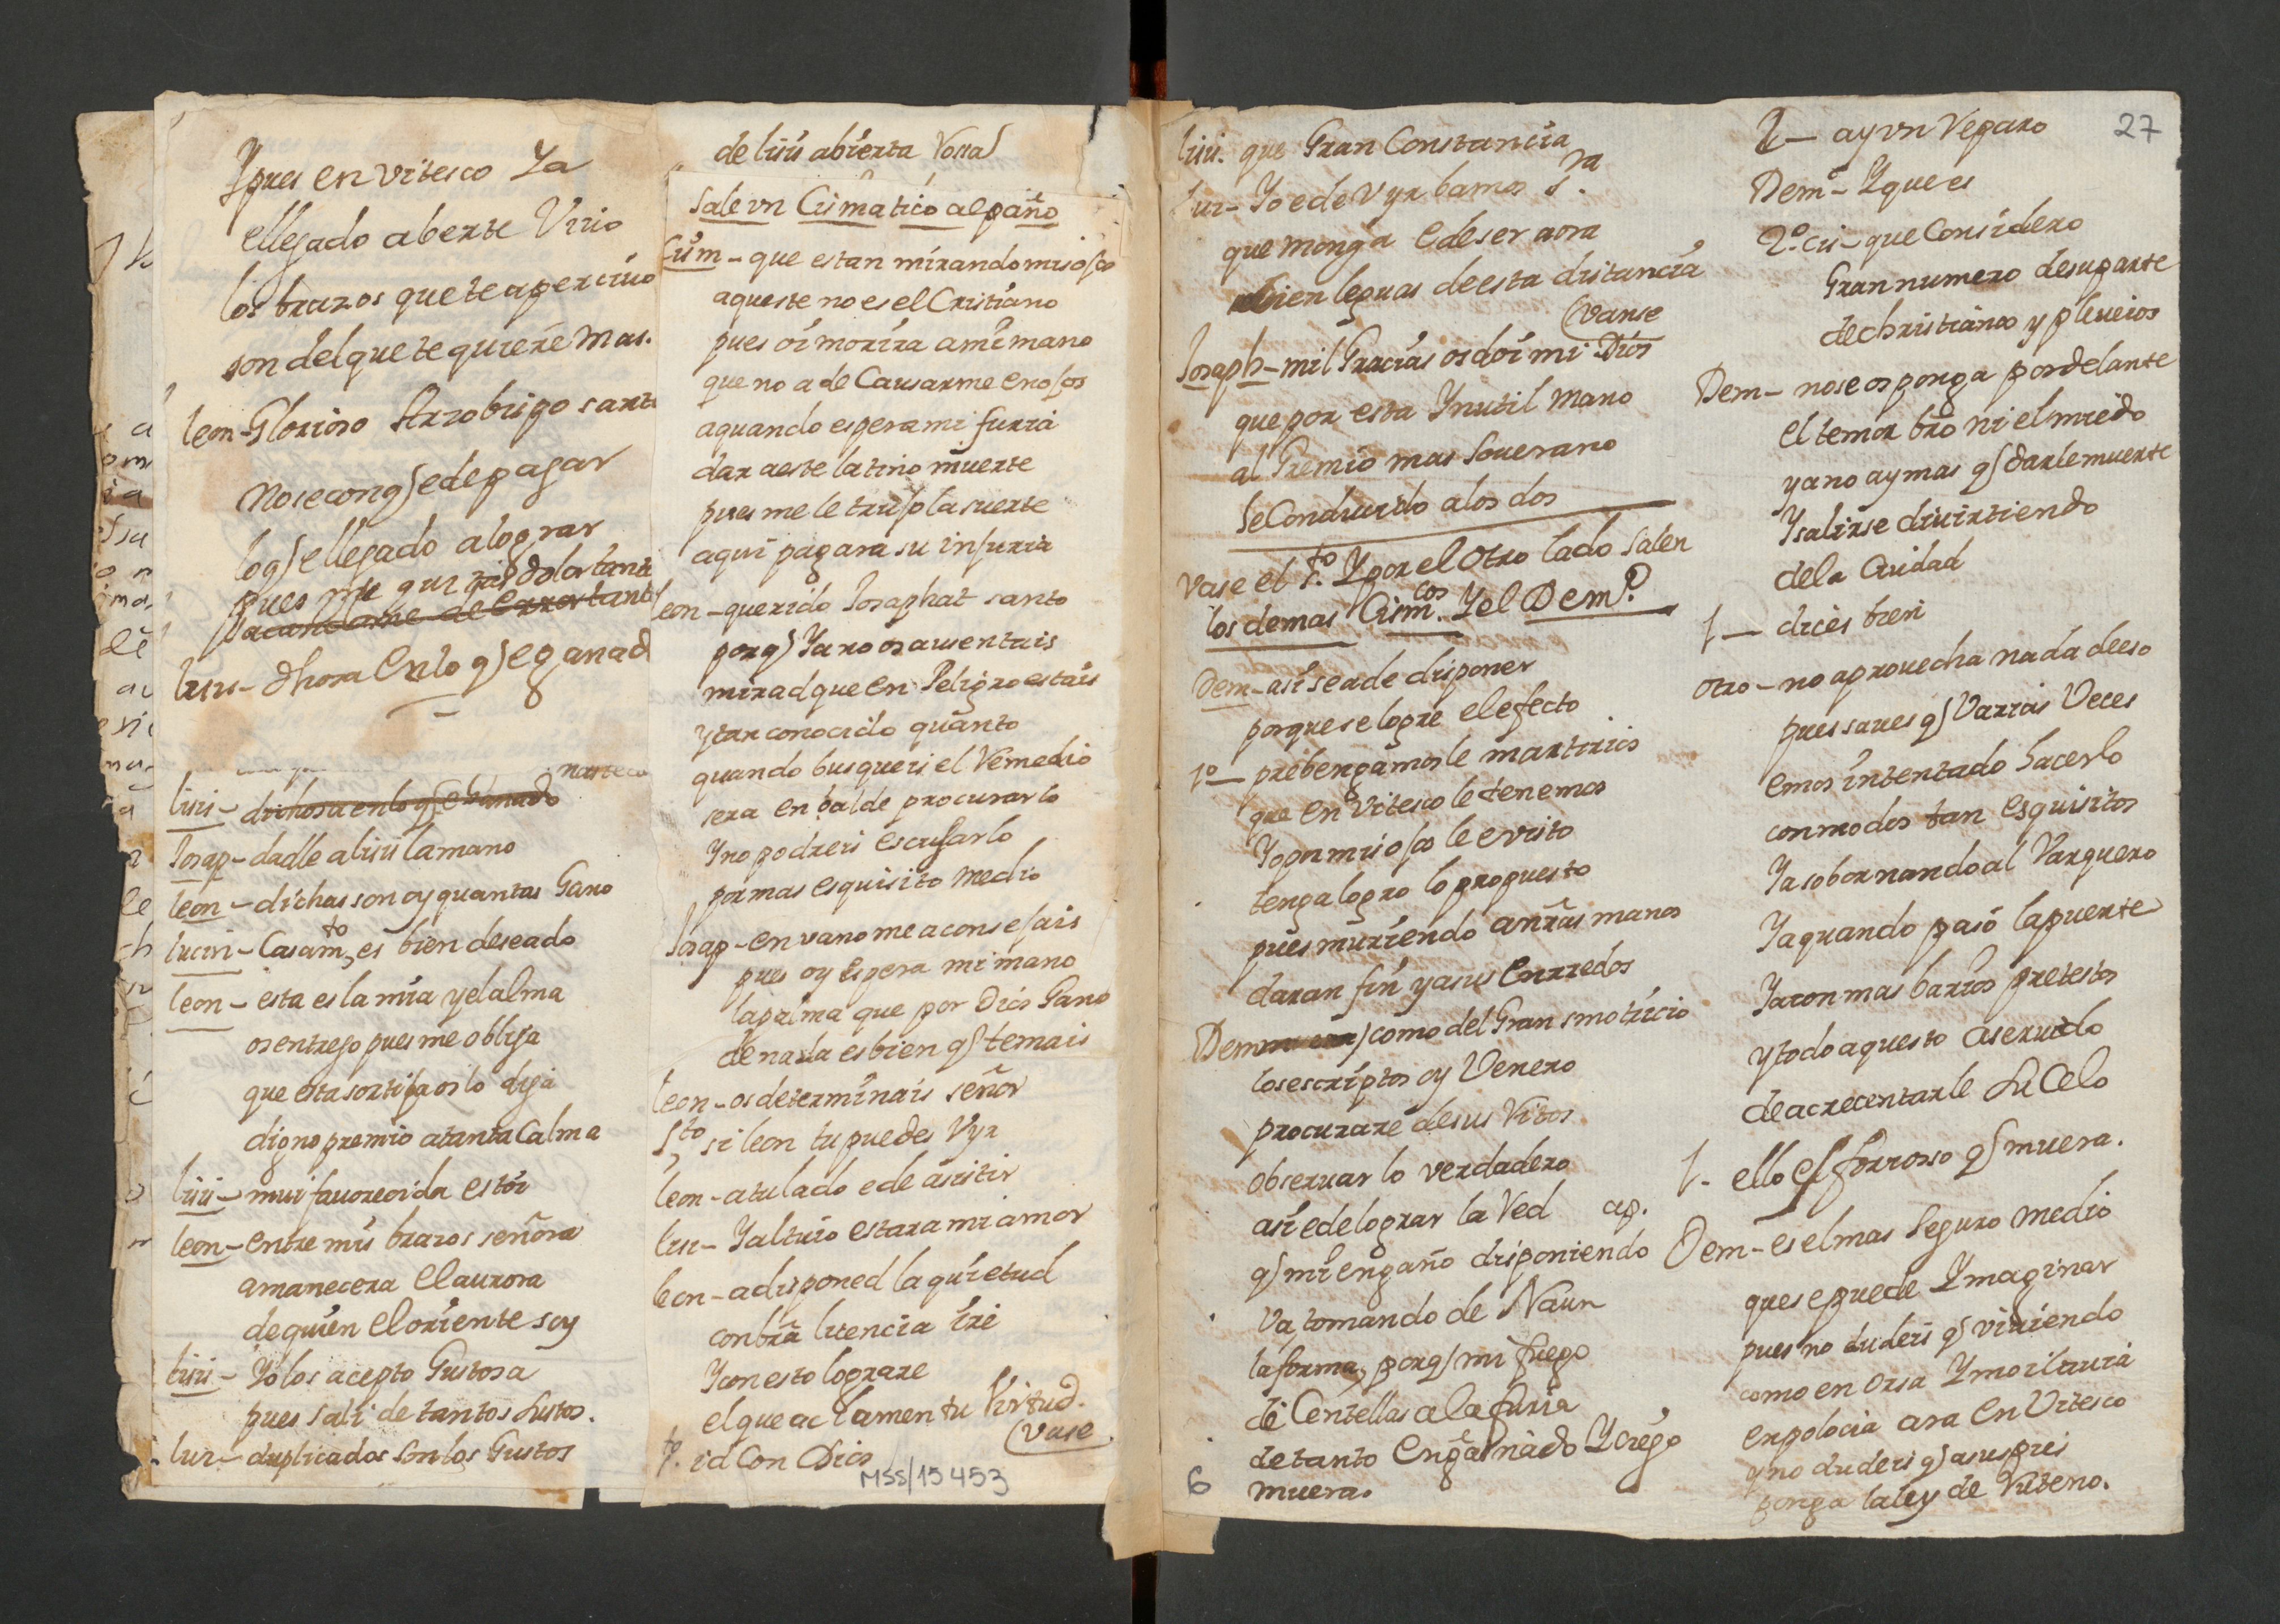 Y pues en vitesco Ya
e llegado a berte Virio
los brazos que te aperciuo
son del que te quiere mas.
leon - Glorioso Arzobispo santo
no se con q̃ e de pagar
lo q̃ e llegado a lograr
pues me
lisis - dhosa en lo q̃ e ganad
lisis - dichosa en lo q̃ e Ganado
Josap - dadle a lisis la mano
leon - dichas son oy quantas Gano
lucin - Casamto es bien deseado
leon - esta es la mia y el alma
os entrego pues me obliga
que esta sortija os lo diga
digno premio a tanta Calma
lisis - mui fauorecida estoi
leon - entre mis brazos señora
amanecera el aurora
de quien el oriente soy
lisis - Yo los acepto Gustosa
pues sali de tantos sustos.
luz - duplicados son los Gustos
de lisis abierta Rosa
Sale vn Cismatico al paño
Cism - que estan mirando mis ojos
aqueste no es el Cristiano
pues oi morira a mi mano
que no a de Causarme enojos
a quando espera mi furia
dar a este latino muerte
pues me le trujo la suerte
aqui pagara su injuria
leon - querido Josaphat santo
porq̃ Ya no os ausentais
mirad que en Peligro estais
y tan conocido quanto
quando busqueis el Remedio
sera en balde procurarlo
Y no podreis escusarlo
por mas esquisito medio
Josap - en vano me aconsejais
pues oy espera mi mano
la palma que por Dios Gano
de nada es bien q̃ temais
leon - os determinais señor
Sto si leon tu puedes Yr
leon - a tu lado e de asistir
lisi - Y al tuio estara mi amor
leon - a disponed la quietud
con bra licencia ire
Y con esto lograre
el que aclamen tu Virtud.
(vase
to. id Con Dios
MSS/15453
lisis. que Gran Constancia
luz - Yo e de Yr bamos Sra.
que monga e de ser aora
cien leguas de esta distancia
(vanse
Josaph - mil Gracias os doi mi Dios
que por esta Ynutil mano
al Premio mas Souerano
se Conducido a los dos
vase el Sto. Y por el otro lado Salen
los demas Cismcos. Y el Demo.
Dem - asi se a de disponer
porque se logre el efecto
1o - prebengamosle martirios
que en Vitesco le tenemos
Yo por mis ojos le e visto
tenga logro lo propuesto
pues muriendo a nr̃as manos
daran fin ya sus Enrredos
Dem como del Gran smotricio
los escriptos oy Venero
procurare de sus Ritos
obseruar lo verdadero
asi e de lograr la Red ap.
q̃ mi engaño disponiendo
va, tomando de Naun
la forma, porq̃ mi fuego
de Centellas a la furia
de tanto Engañado Y Ciego
muera.
6
27
1 - ay vn Reparo
Demo - Y que es
2o. cis - que Considero
Gran numero de su parte
de christianos y plebeios
Dem - no se os ponga por delante
el temor bro ni el miedo
ya no ay mas q̃ darle muerte
Y salirse diuirtiendo
de la Ciudad
1 - dices bien
otro - no aprouecha nada de eso
pues saues q̃ Varias Veces
emos intentado hacerlo
con modos tan esquisitos
Ya sobornando al Varquero
Ya quando paso la puente
Ya con mas barios pretestos
y todo aquesto a seruido
de acrecentarle su Celo
1 - ello es forzoso q̃ muera.
Dem - es el mas Seguro medio
que se puede Ymaginar
pues no dudeis q̃ viuiendo
como en Orsa Y moilauia
en polocia ara en Vitesco
y no dudeis q̃ a sus pies
ponga la ley de Ruteno.